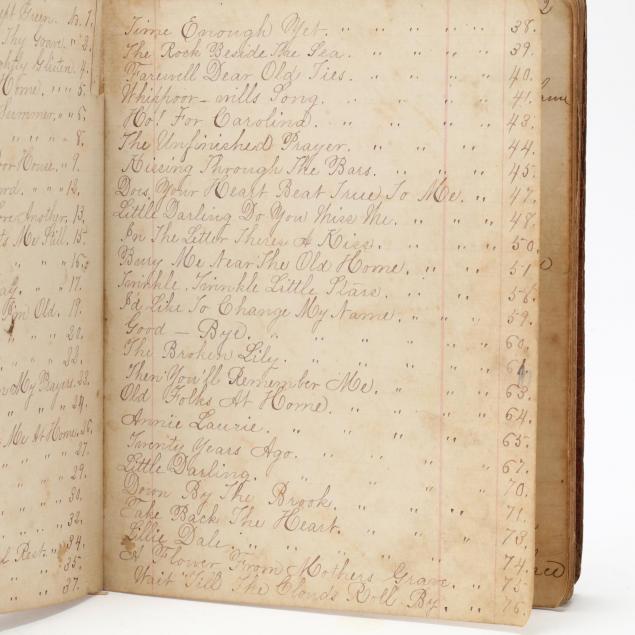 ept Green. No. 1.
Thy Grave. " 2.
Glisten. 4.
Home. " " 5.
Summer. " 5.
" " " 8.
oor House. " 9.
ord. " " 12.
ove Another. 13.
ts Me Still. 15.
" " 16.
" 17.
Old. 19.
" " 20.
" " 22.
n My Prayers. 23.
" " 24.
Me At Home. 26.
" " 27.
" " 29.
" " 30.
" " 32.
Rest. " 34.
" " 35.
" " 37.
Time Enough Yet. " " " " 38.
The Rock Beside The Sea. " " " 39.
Farewell Dear Old Ties. " " " " 40.
Whippoor-wills Song. " " " " 41.
Ho! For Carolina. " " " " 43.
The Unfinished Prayer. " " " " 44.
Kissing Through The Bars. " " " 45.
Does Your Heart Beat True To Me. " " 47.
Little Darling Do You Miss Me. " " " 48.
In The Letter Theres A Kiss. " " " 50.
Bury Me Near The Old Home. " " " 51.
Twinkle, Twinkle Little Stars. " " " 56.
I'd Like To Change My Name. " " " 59.
Good - Bye. " " " " " 60.
The Broken Lily. " " " " 61.
Then You'll Remember Me. " " " 63.
Old Folks At Home. " " " " 64.
Annie Laurie. " " " " " 65.
Twenty Years Ago. " " " " 67.
Little Darling. " " " " " 70.
Down By The Brook. " " " " 71.
Take Back The Heart. " " " " 73.
Lillie Dale. " " " " " 74.
A Flower From Mothers Grave. " " 75.
Wait Till The Clouds Roll By. " " 76.